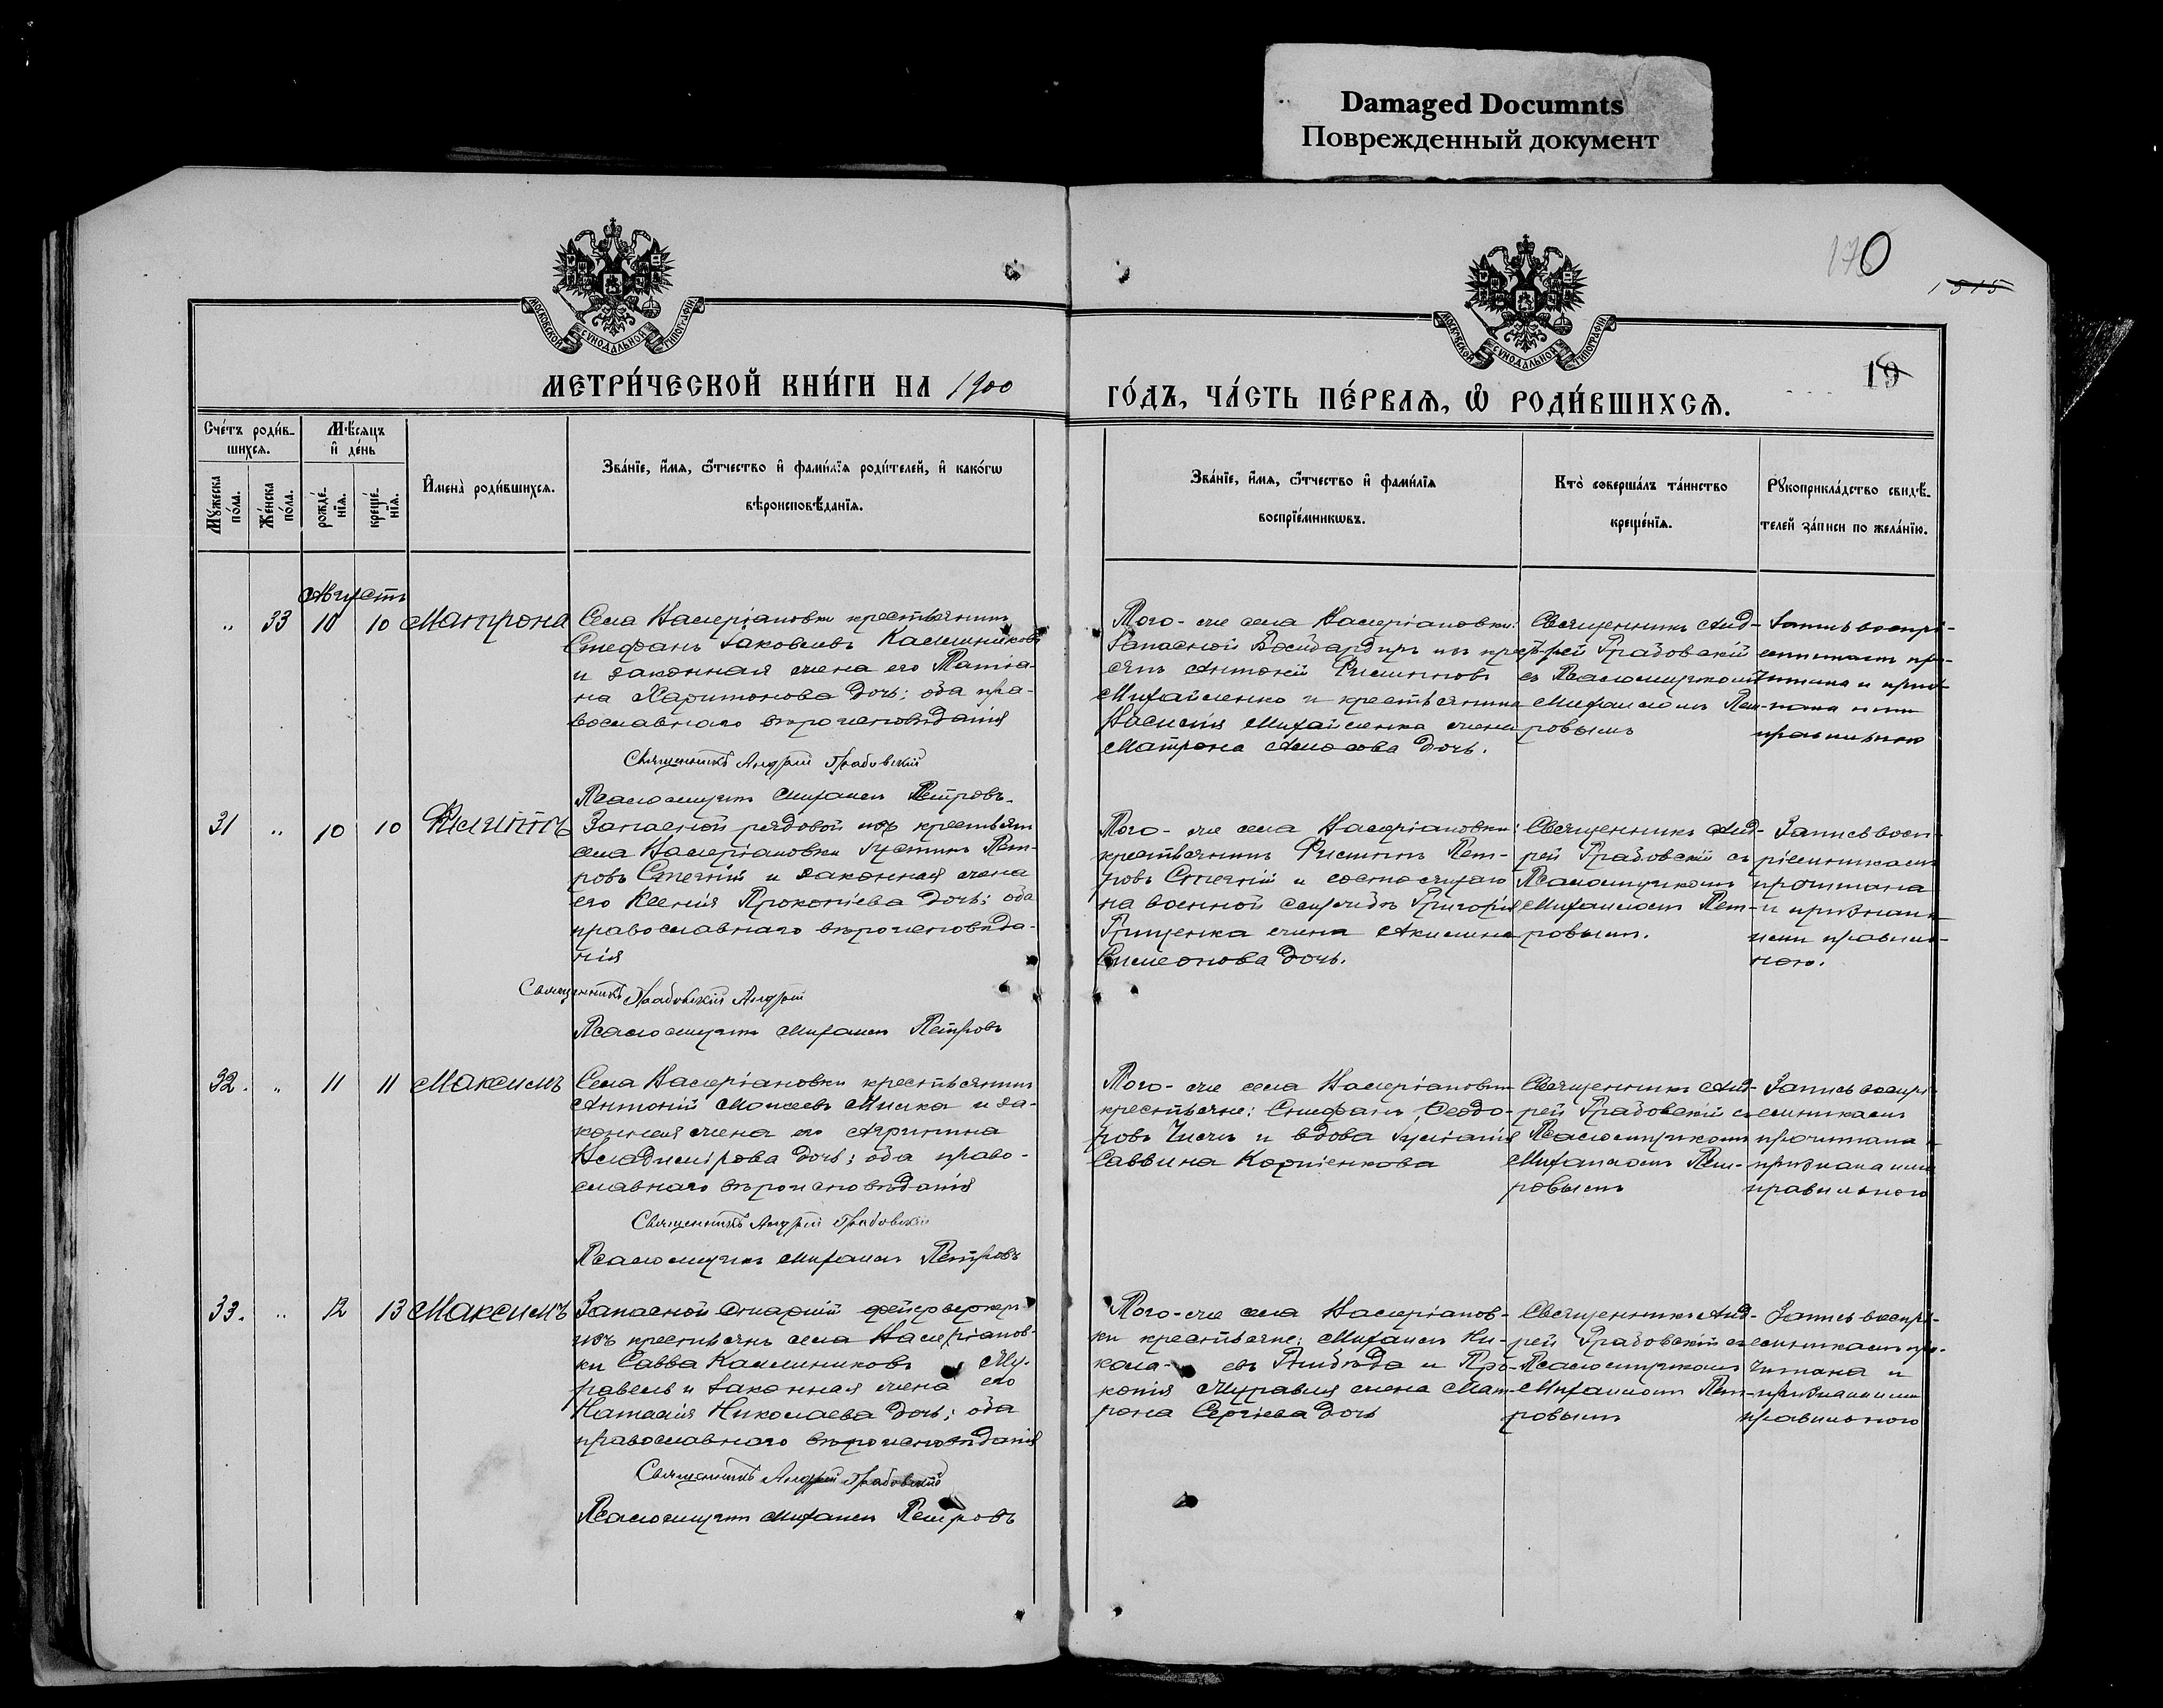 Damaged Documnts
Поврежденный документ
170
1515
МОСКОВСКОЙ СѴНОДАЛЬНОЙ ТИПОГРАФІИ
МОСКОВСКОЙ СѴНОДАЛЬНОЙ ТИПОГРАФІИ
19
МЕТРИ́ЧЕСКОЙ КНИ́ГИ НА 1900
ГО́ДЪ, ЧА́СТЬ ПЕ́РВАѦ, Ѡ҆ РОДИ́ВШИХСѦ.
Сче́тъ роди́в-
шихсѧ.
Мѣ́сяцъ
и҆ де́нь
Мꙋ́жеска по́ла.
Же́нска по́ла.
рожде́нїѧ.
креще́нїѧ.
И҆мена̀ роди́вшихсѧ.
Зва́нїе, и҆́мѧ, ѻ҆́тчество и҆ фами́лїѧ роди́телей, и҆ како́гѡ
вѣроисповѣ́данїѧ.
Зва́нїе, и҆́мѧ, ѻ҆́тчество и҆ фами́лїѧ
воспрїе́мникѡвъ.
Кто̀ соверша́лъ та́инство
креще́нїѧ.
Рꙋкоприкла́дство свидѣ́-
телей за́писи по жела́нїю.
Августъ
„ 33 10 10 Матрона
Села Валеріановки крестьянинъ
Стефанъ Іаковлевъ Калашниковъ
и законная жена его Татіа-
на Харитонова дочь; оба пра-
вославнаго вѣроисповѣданія
Священникъ Андрей Грабовскій
Псаломщикъ Михаилъ Петровъ.
Того-же села Валеріановки:
Запасной Бомбардиръ изъ кре-
стьянъ Антоній Филиповъ
Михайленко и крестьянина
Василія Михайленка жена
Матрона Амосова дочь.
Священникъ Анд-
рей Грабовскій
съ Псаломщикомъ
Михаиломъ Пет-
ровымъ
31 „ 10 10 Филиппъ
Запасной рядовой изъ крестьянъ
села Валеріановки Іустинъ Пет-
ровъ Стегній и законная жена
его Ксенія Прокопіева дочь; оба
православнаго вѣроисповѣда-
нія
Священникъ Грабовскій Андрей
Псаломщикъ Михаилъ Петровъ
Того-же села Валеріановки:
крестьянинъ Филиппъ Пет-
ровъ Стегній и состоящаго
на военной службѣ Григорія
Грищенка жена Акилина
Симеонова дочь.
Священникъ Анд-
рей Грабовскій съ
Псаломщикомъ
Михаиломъ Пет-
ровымъ.
Запись восп-
ріемникамъ
прочитана
и признана
ими правиль-
ною.
32. „ 11 11 Максимъ
Села Валеріановки крестьянинъ
Антоній Моисеевъ и за-
конная жена его Агрипина
Владимірова дочь; оба право-
славнаго вѣроисповѣданія
Священникъ Андрей Грабовскій
Псаломщикъ Михаилъ Петровъ
Того-же села Валеріановки
крестьяне: Стефанъ Ѳеодо-
ровъ и вдова Іуліанія
Саввина Корніенкова
Священникъ Анд-
рей Грабовскій съ
Псаломщикомъ
Михаиломъ Пет-
ровымъ
Запись воспрі-
емникамъ
прочитана и
признана ими
правильною
33. „ 12 13 Максимъ
Запасной старшій фейерверкеръ
изъ крестьянъ села Валеріанов-
ки Савва Калинниковъ Му-
равель и законная жена его
Наталія Николаева дочь; оба
православнаго вѣроисповѣданія
Священникъ Андрей Грабовскій
Псаломщикъ Михаилъ Петровъ
Того-же села Валеріанов-
ки крестьяне: Михаилъ Ни-
кола- евъ и Про-
копія Муравля жена Мат-
рона Сергіева дочь
Священникъ Анд-
рей Грабовскій съ
Псаломщикомъ
Михаиломъ Пет-
ровымъ
Запись воспрі-
емникамъ про-
читана и
признана ими
правильною